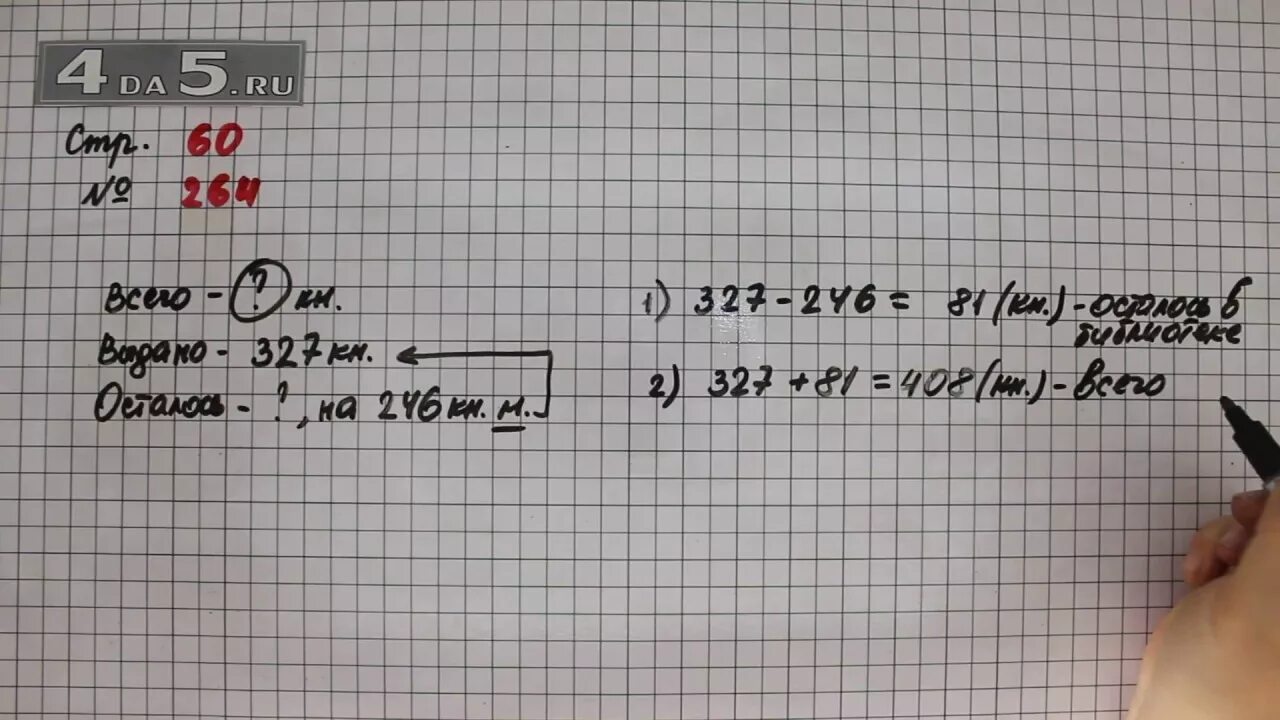 4DA5.RU
Стр. 60
№ 264
Всего - ? кн.
Выдано - 327 кн.
Осталось - ?, на 246 кн. м.
1) 327 - 246 = 81 (кн.) - осталось в
библиотеке
2) 327 + 81 = 408 (кн.) - Всего